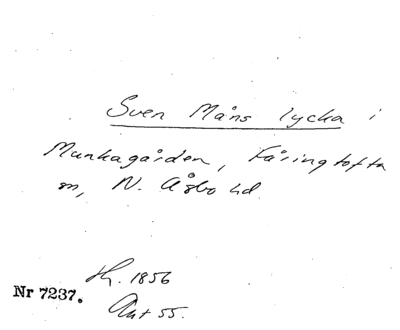 Sven Måns lycka i
Munkagården, Färingtofta
sn, N. Åsbo hd.
H. 1856
Nr 7237.
Akt 55.